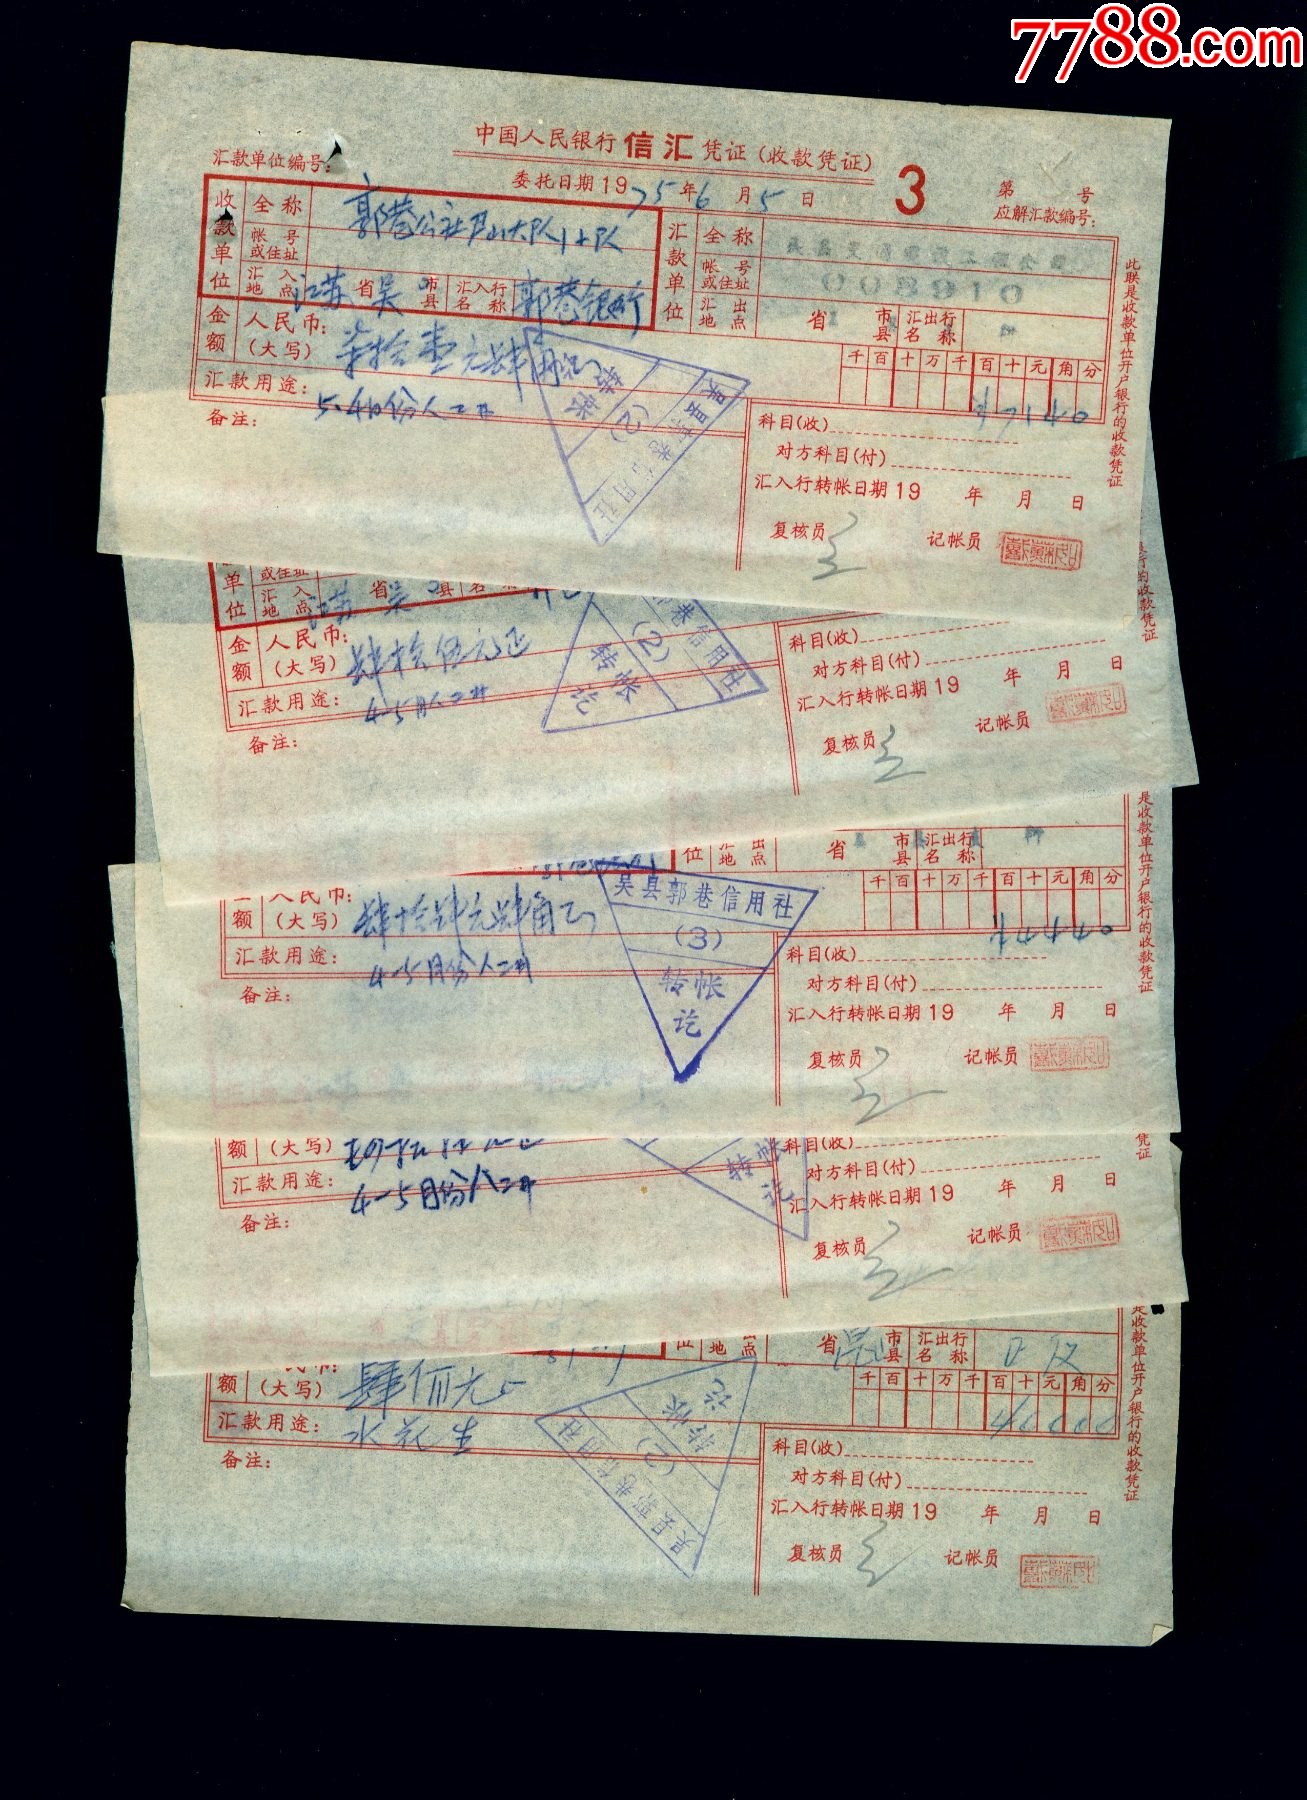 7788.com
中国人民银行 信汇 凭证（收款凭证）
3
汇款单位编号：
委托日期1975年6月5日
第 号
应解汇款编号：
收款单位
全称
郭巷公社
大队
队
帐号或住址
汇入地点
江苏 省 吴 市县
汇入行名称
郭巷银行
汇款单位
全称
帐号或住址
0188300
汇出地点
省 市县
汇出行名称
此联是收款单位开户银行的收款凭证
金额
人民币：（大写）
柒拾壹元肆角
千百十万千百十元角分
¥7140
汇款用途：
备注：
吴县郭巷信用社
(2)
转帐讫
科目(收)
对方科目(付)
汇入行转帐日期19 年 月 日
复核员
记帐员
单位
或住址
汇入地点
江苏 省 吴 县
金额
人民币：（大写）
肆拾伍元正
汇款用途：
4-5月人工
备注：
巷信用社
(2)
转帐讫
科目(收)
对方科目(付)
汇入行转帐日期19 年 月 日
复核员
记帐员
的收款凭证
位
地点
省 市县
汇出行名称
额
人民币：（大写）
肆拾肆元肆角
千百十万千百十元角分
¥4440
汇款用途：
4-5月份人工
备注：
吴县郭巷信用社
(3)
转帐讫
科目(收)
对方科目(付)
汇入行转帐日期19 年 月 日
复核员
记帐员
是收款单位开户银行的收款凭证
额
（大写）
汇款用途：
4-5月份人工
备注：
转帐讫
科目(收)
对方科目(付)
汇入行转帐日期19 年 月 日
复核员
记帐员
凭证
位
地点
省 昆山 市县
汇出行名称
额
（大写）
肆佰元
千百十万千百十元角分
40000
汇款用途：
水花生
备注：
吴县郭巷信用社
(2)
转帐讫
科目(收)
对方科目(付)
汇入行转帐日期19 年 月 日
复核员
记帐员
是收款单位开户银行的收款凭证